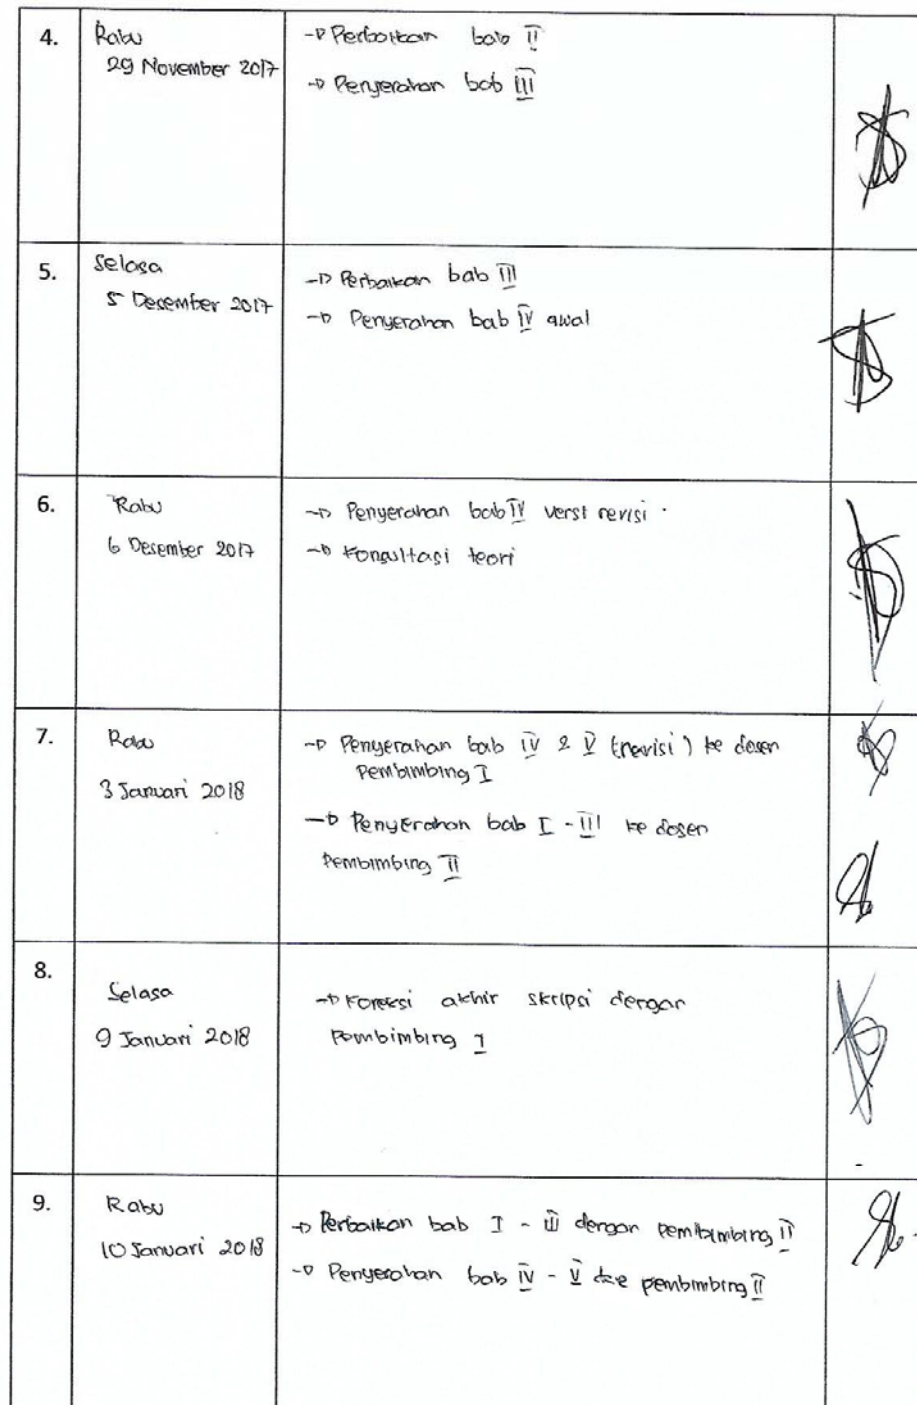 4.
Rabu
29 November 2017
→ Perbaikan bab II
→ Penyerahan bab III
5.
Selasa
5 Desember 2017
→ Perbaikan bab III
→ Penyerahan bab IV awal
6.
Rabu
6 Desember 2017
→ Penyerahan bab IV versi revisi.
→ Konsultasi teori
7.
Rabu
3 Januari 2018
→ Penyerahan bab IV & V (revisi) ke dosen
Pembimbing I
→ Penyerahan bab I - III ke dosen
Pembimbing II
8.
Selasa
9 Januari 2018
→ Koreksi akhir skripsi dengan
Pembimbing I
9.
Rabu
10 Januari 2018
→ Perbaikan bab I - III dengan pembimbing II
→ Penyerahan bab IV - V ke pembimbing II